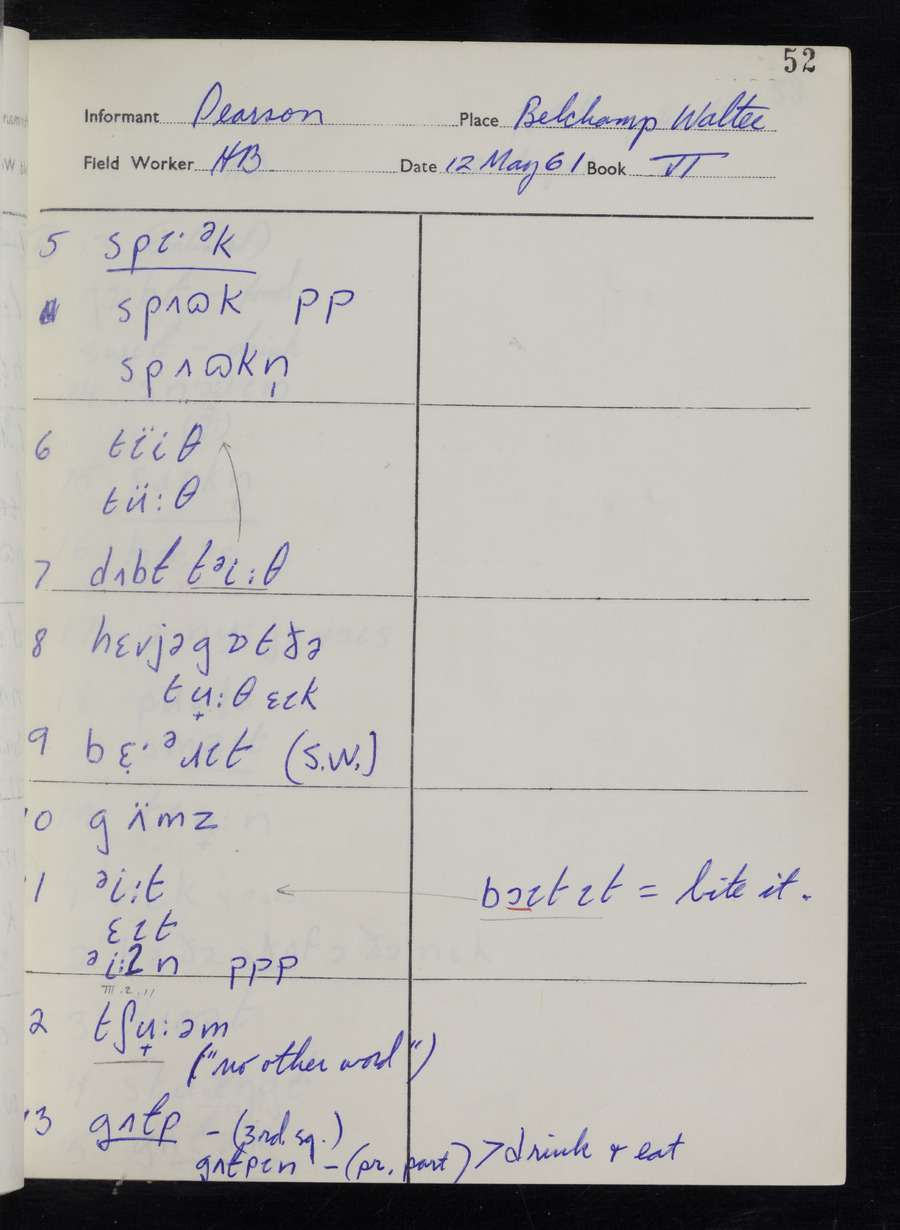 52
Informant Pearson Place Belchamp Walter
Field Worker HB Date 12 May 61 Book VI
5 spɪ·ᵊk
spʌɷk pp
spʌɷkn̩
6 tïiθ
tü:θ
7 dʌbt tᵊi:θ
8 hɛvjəgɒtðə
tʉ:θ ɛɪk
9 bɛ̣·ᵊɹɪt (S.W.)
10 gʌ̈mz
11 ᵊi:t bɔɪt ɪt = bite it.
ɛɪt
ᵊi:ʔn ppp
III.2.11
2 tʃʉ:əm
("no other word")
13 gʌtp – (3rd. sg.)
gʌtpɪn – (pr. part) > drink + eat